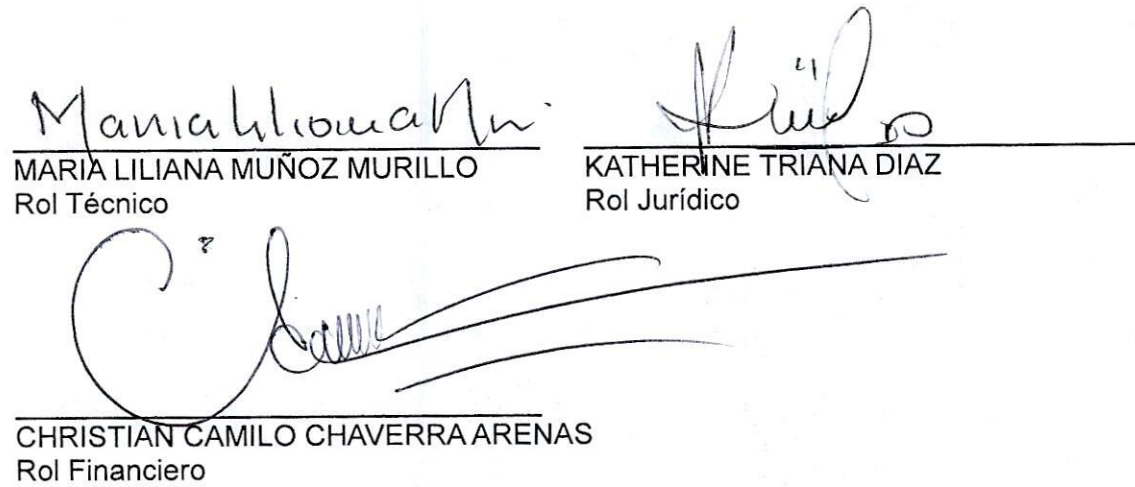 MARIA LILIANA MUÑOZ MURILLO
Rol Técnico
KATHERINE TRIANA DIAZ
Rol Jurídico
CHRISTIAN CAMILO CHAVERRA ARENAS
Rol Financiero